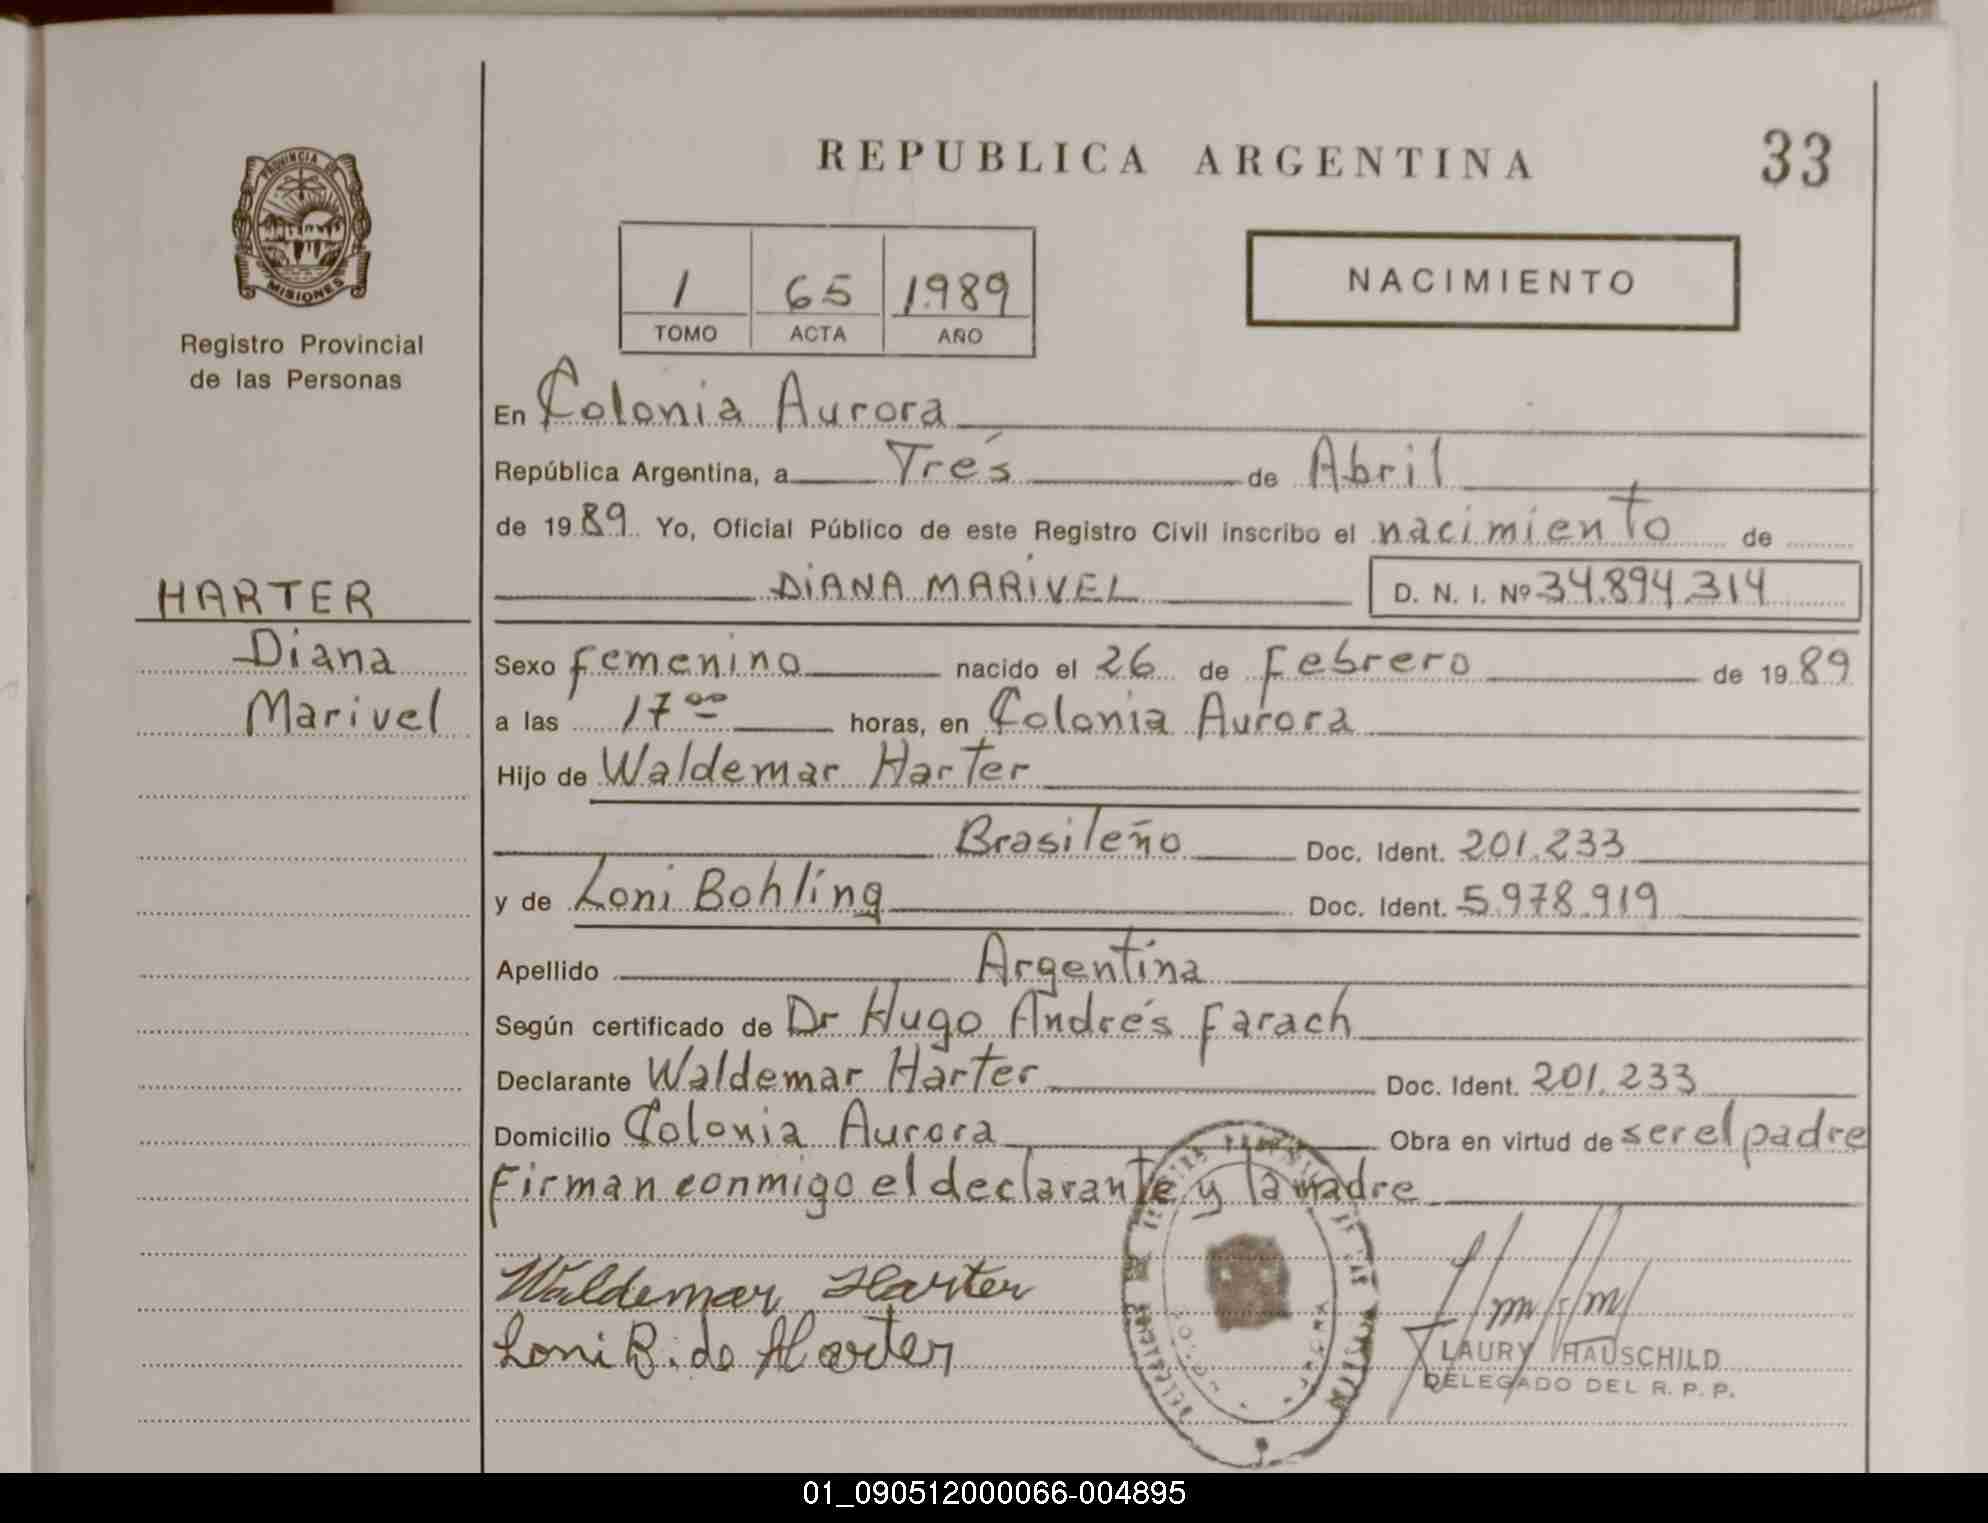 PROVINCIA DE
MISIONES
Registro Provincial
de las Personas
HARTER
Diana
Marivel
REPUBLICA ARGENTINA
33
1 65 1.989
TOMO ACTA AÑO
NACIMIENTO
En Colonia Aurora
República Argentina, a Trés de Abril
de 1989. Yo, Oficial Público de este Registro Civil inscribo el nacimiento de
DiANA MARiVEL D. N. I. Nº 34.894.314
Sexo femenino nacido el 26 de Febrero de 1989
a las 17 00 horas, en Colonia Aurora
Hijo de Waldemar Harter
Brasileño Doc. Ident. 201.233
y de Loni Bohling Doc. Ident. 5.978.919
Apellido Argentina
Según certificado de Dr Hugo Andrés Farach
Declarante Waldemar Harter Doc. Ident. 201.233
Domicilio Colonia Aurora Obra en virtud de ser el padre
Firman conmigo el declarante y la madre
Waldemar Harter
Loni B. de Harter
LAURY HAUSCHILD
DELEGADO DEL R. P. P.
01_090512000066-004895